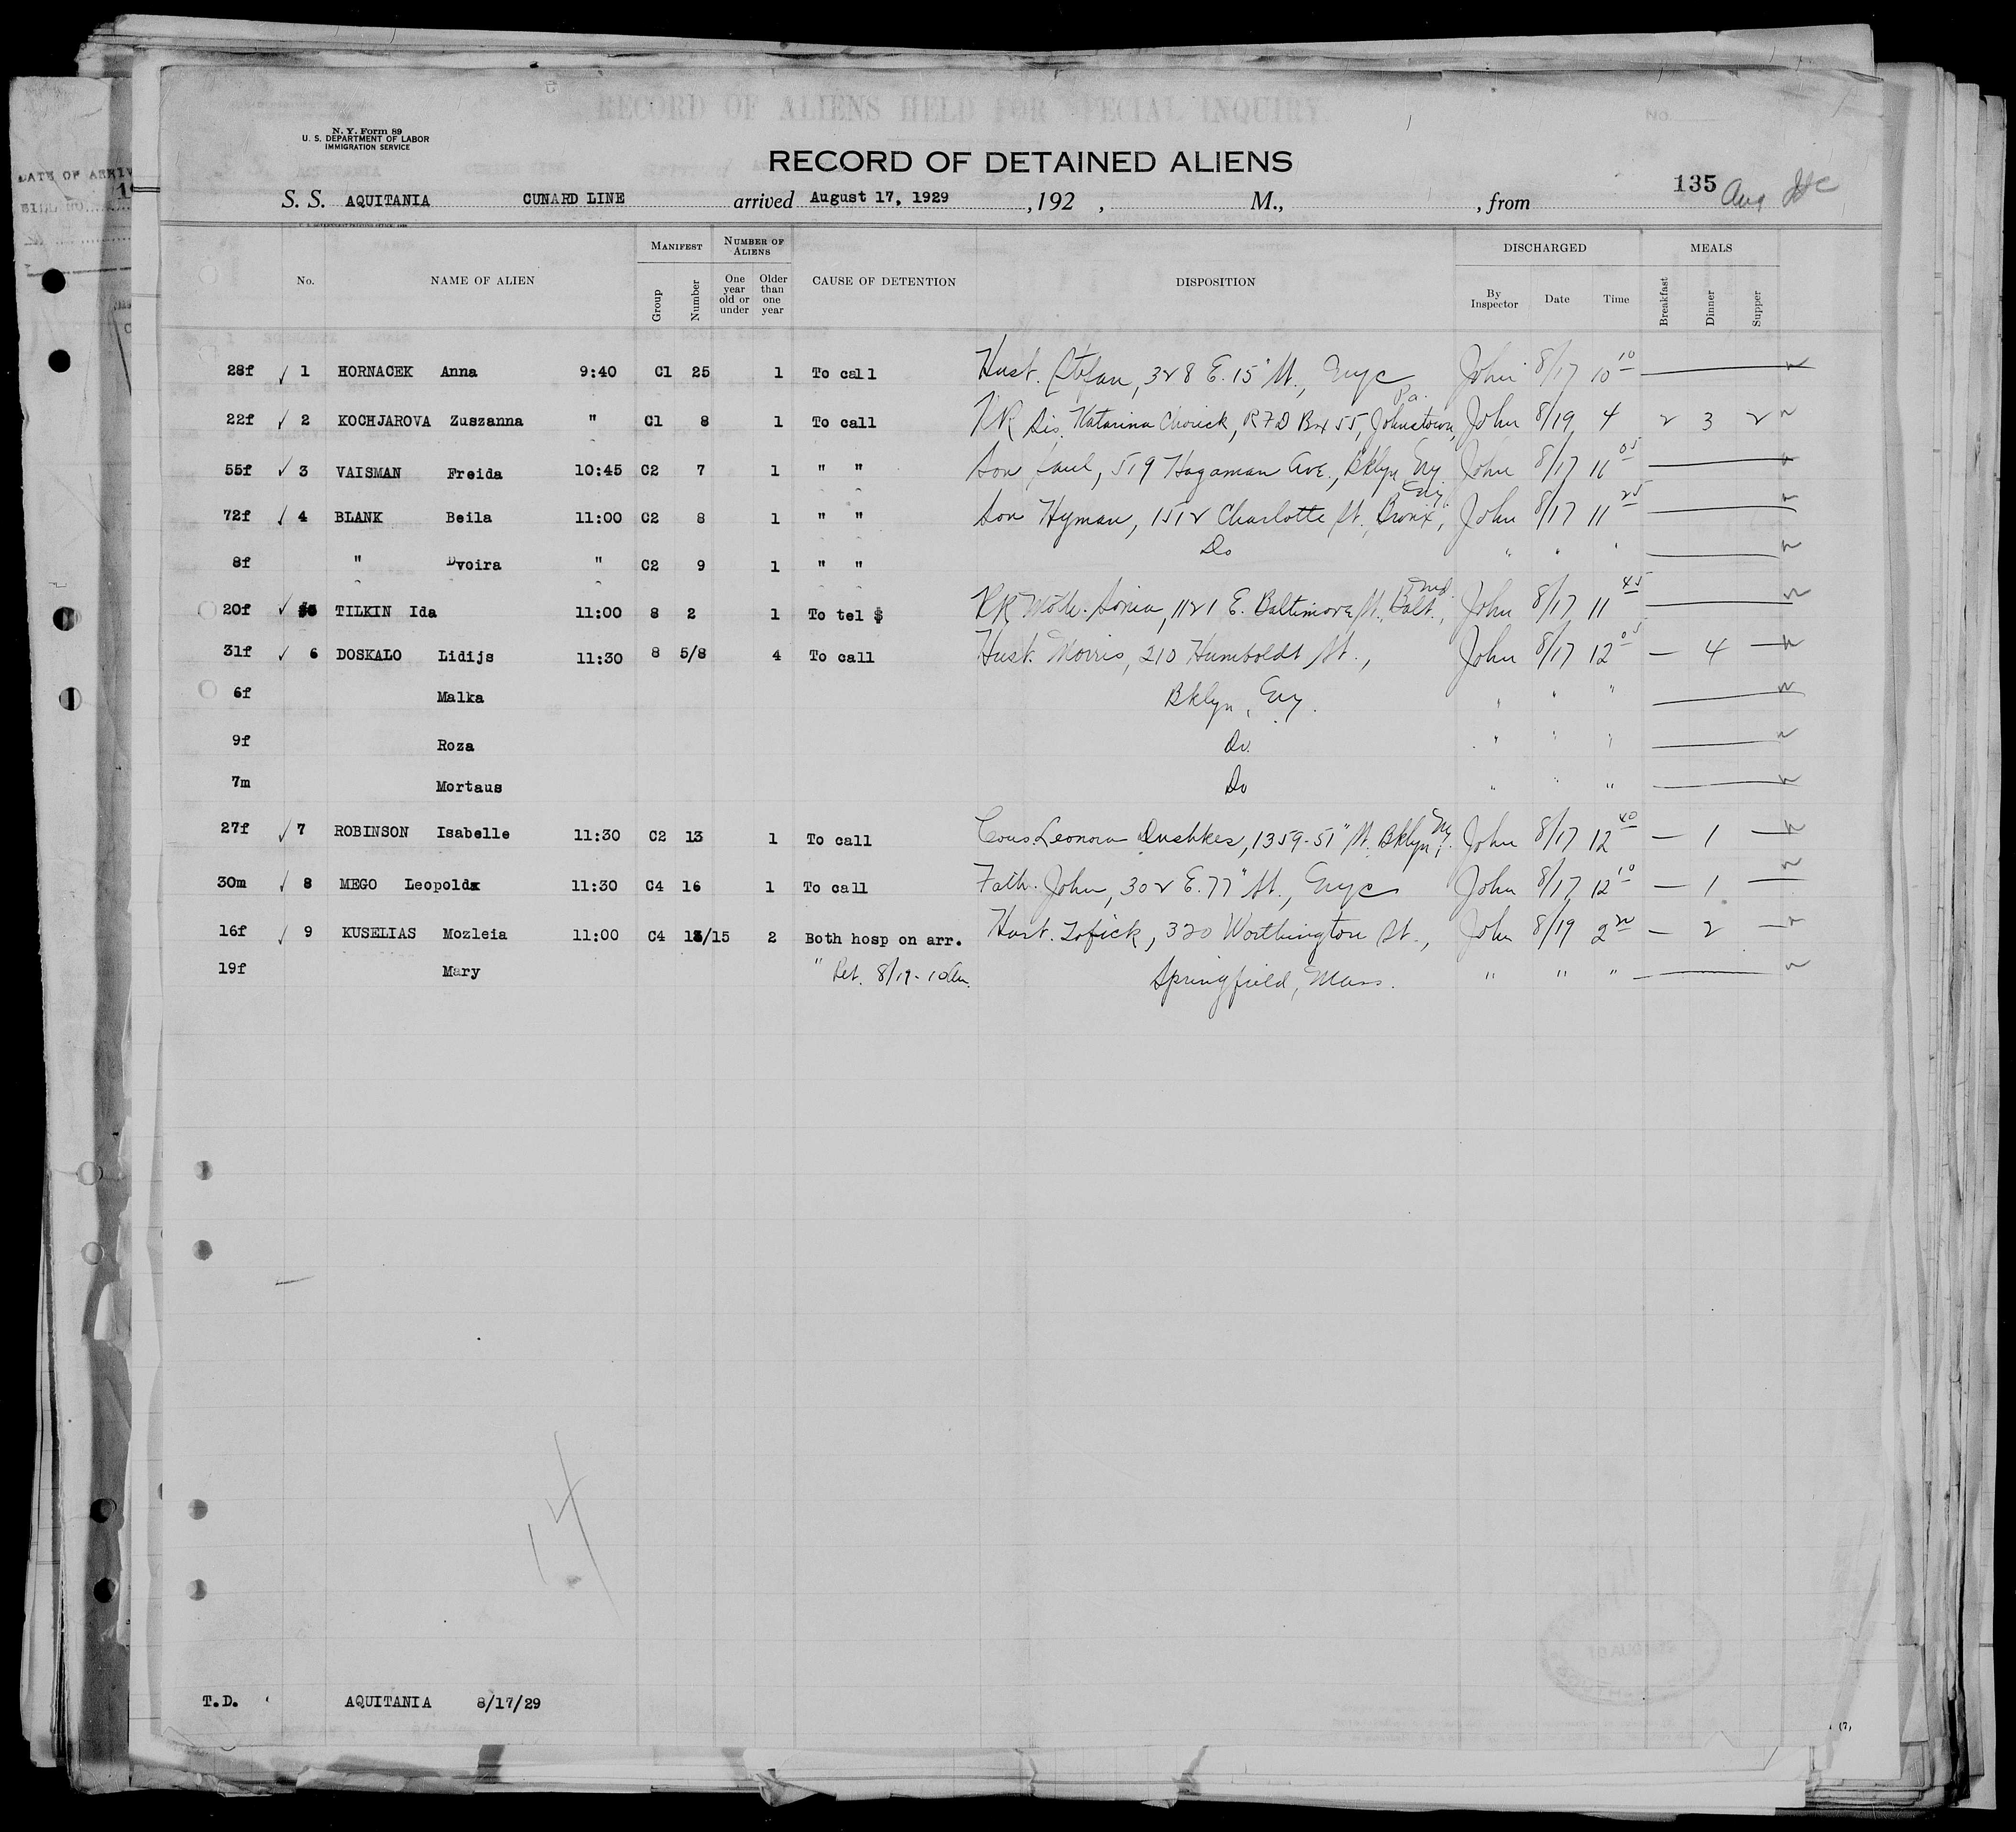 DATE OF ARRIV
RECORD OF ALIENS HELD FOR SPECIAL INQUIRY
NO.
N. Y. Form 89
U. S. DEPARTMENT OF LABOR
IMMIGRATION SERVICE
RECORD OF DETAINED ALIENS
135 Aug
S. S. AQUITANIA CUNARD LINE arrived August 17, 1929 , 192 , M., , from
No. NAME OF ALIEN MANIFEST Group Number NUMBER OF ALIENS One year old or under Older than one year CAUSE OF DETENTION DISPOSITION DISCHARGED By Inspector Date Time MEALS Breakfast Dinner Supper
28f ✓ 1 HORNACEK Anna 9:40 C1 25 1 To call Husb. Stefan, 328 E. 15" St., Nyc John 8/17 10 10
22f ✓ 2 KOCHJAROVA Zuszanna " C1 8 1 To call RR Sis. Katarina Chorick, RFD Box 55, Johnstown, Pa. John 8/19 4 2 3 2
55f ✓ 3 VAISMAN Freida 10:45 C2 7 1 " " Son Saul, 519 Hagaman Ave., Bklyn Ny John 8/17 11 05
72f ✓ 4 BLANK Beila 11:00 C2 8 1 " " Son Hyman, 1512 Charlotte St., Bronx, Ny. John 8/17 11 25
8f " Dvoira " C2 9 1 " " Do " " "
20f ✓ 5 TILKIN Ida 11:00 8 2 1 To tel $ RR Moth. Sonia, 1121 E. Baltimore St., Balt., Md. John 8/17 11 45
31f ✓ 6 DOSKALO Lidijs 11:30 8 5/8 4 To call Husb. Morris, 210 Humboldt St., John 8/17 12 05 — 4 —
6f Malka Bklyn, Ny. " " "
9f Roza Do " " "
7m Mortaus Do " " "
27f ✓ 7 ROBINSON Isabelle 11:30 C2 13 1 To call Cous. Leonora Dushkes, 1359-51" St. Bklyn, Ny. John 8/17 12 40 — 1 —
30m ✓ 8 MEGO Leopoldx 11:30 C4 16 1 To call Fath. John, 302 E. 77" St., Nyc John 8/17 12 10 — 1 —
16f ✓ 9 KUSELIAS Mozleia 11:00 C4 13/15 2 Both hosp on arr. Husb. Tofick, 320 Worthington St., John 8/19 2 20 — 2 —
19f Mary " Ret. 8/19 - 10am. Springfield, Mass. " " "
14
T.D. AQUITANIA 8/17/29